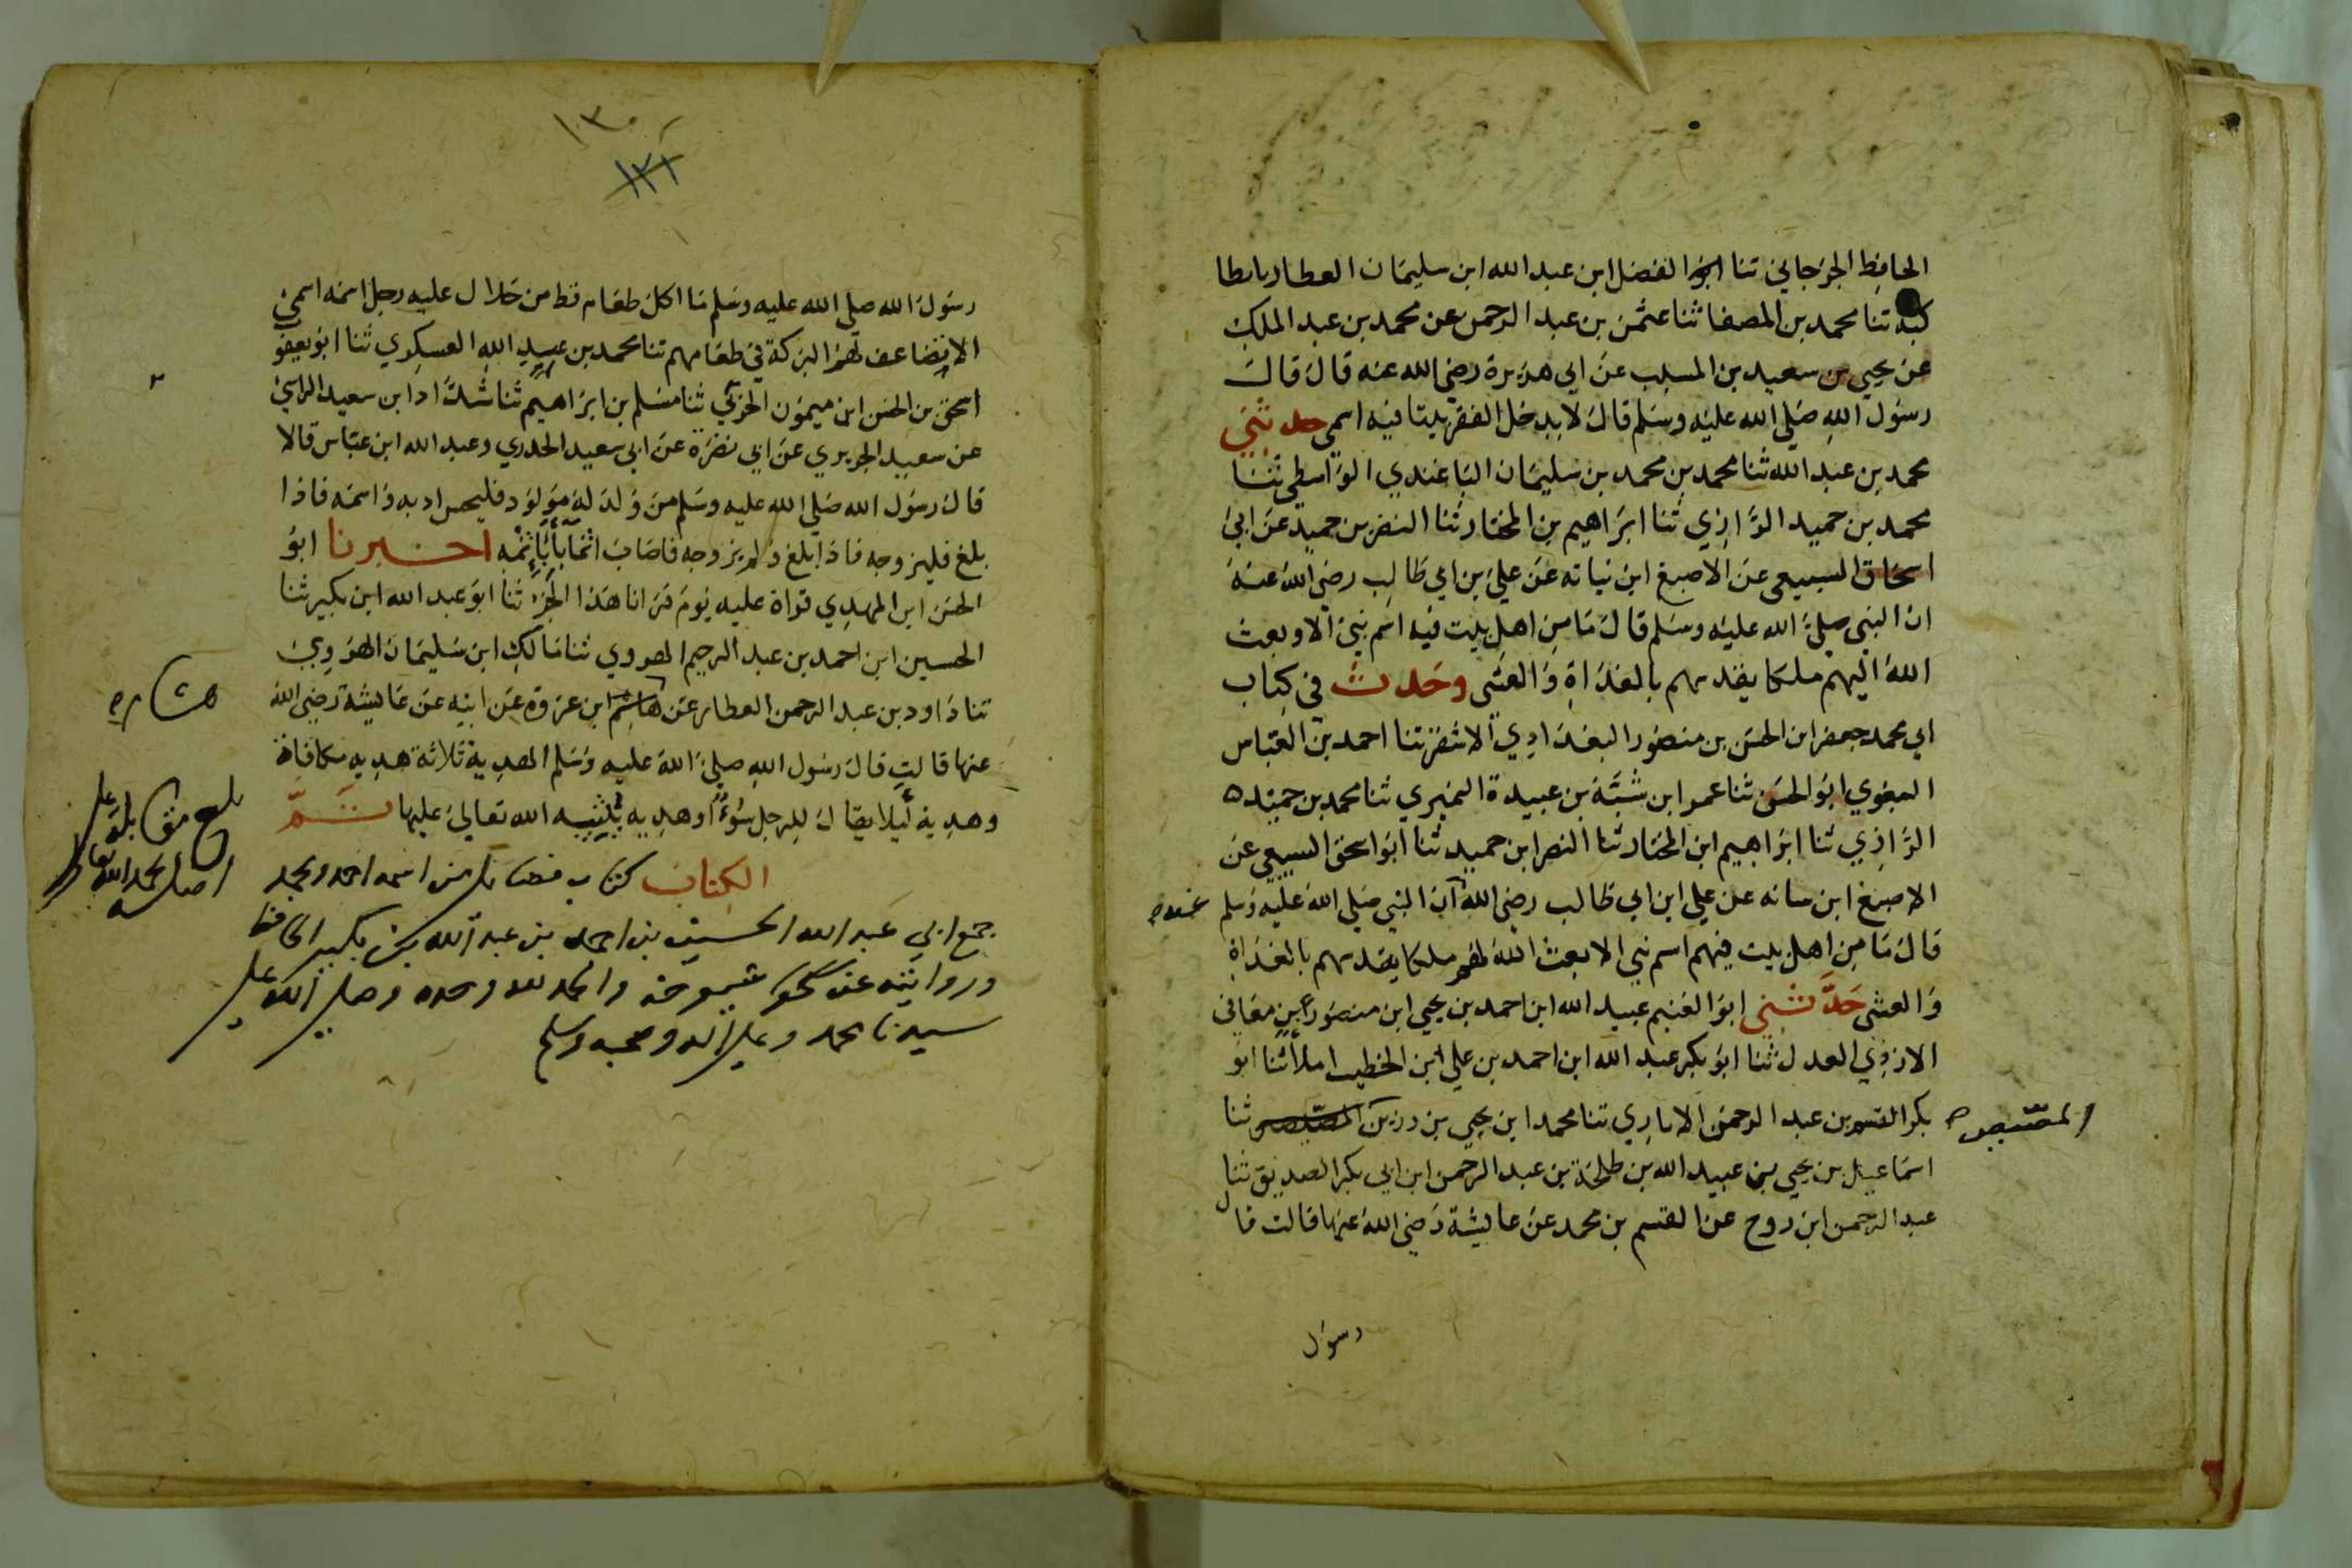 الحافظ الجرجاني ثنا ابو الفضل ابن عبد الله ابن سليمان العطار بانطا
كية ثنا محمد بن المصفا ثنا عثمن بن عبد الرحمن عن محمد بن عبد الملك
عن يحيي بن سعيد بن المسيب عن ابي هريرة رضي الله عنه قال قال
رسول الله صلي الله عليه وسلم قال لا يدخل الفقر بيتا فيه اسمي حدثني
محمد بن عبد الله ثنا محمد بن محمد بن سليمان الباغندي الواسطي ثنا
محمد بن حميد الرازي ثنا ابراهيم بن المختار ثنا النضر بن حميد عن ابي
اسحاق السبيعي عن الاصبغ ابن نباته عن علي بن ابي طالب رضي الله عنه
ان النبي صلي الله عليه وسلم قال ما من اهل بيت فيه اسم نبي الا وبعث
الله اليهم ملكا يقدسهم بالغداة والعشي وحدث في كتاب
ابي محمد جعفر ابن الحسن بن منصور البغدادي الاشقر ثنا احمد بن العباس
البغوي ابو الحسن ثنا عمر ابن شبة بن عبيدة النميري ثنا محمد بن حميد
الرازي ثنا ابراهيم ابن المختار ثنا النضر ابن حميد ثنا ابو اسحق السبيعي عن
الاصبغ ابن نباته عن علي ابن ابي طالب رضي الله ان النبي صلي الله عليه وسلم
عنه صح
قال ما من اهل بيت فيهم اسم نبي الا بعث الله لهم ملكا يقدسهم بالغداة
والعشي حدثني ابو الغنم عبيد الله ابن احمد بن يحيي ابن منصور ابن معافى
الازدي العدل ثنا ابو بكر عبد الله ابن احمد بن علي ابن الخطيب املأ ثنا ابو
بكر القسم بن عبد الرحمن الانباري ثنا محمد ابن يحيي بن رزين ثنا
اسماعيل بن يحيي بن عبيد الله بن طلحة بن عبد الرحمن ابن ابي بكر الصديق ثنا
عبد الرحمن ابن روح عن القسم بن محمد عن عايشة رضي الله عنها قالت قال
رسول
١٣٠
١٢١
رسول الله صلي الله عليه وسلم ما اكل طعام قط من حلال عليه رجل اسمه اسمي
الا تضاعف لهم البركة في طعامهم ثنا محمد بن عبيد الله العسكري ثنا ابو يعقو
اسحق بن الحسن ابن ميمون الحربي ثنا مسلم بن ابراهيم ثنا شداد ابن سعيد الراسبي
عن سعيد الجريري عن ابي نضرة عن ابي سعيد الخدري وعبد الله ابن عباس قالا
قال رسول الله صلي الله عليه وسلم من ولد له مولود فليحسن ادبه واسمه فاذا
بلغ فليزوجه فاذا بلغ ولم يزوجه فاصاب اثما با باثمه اخبرنا ابو
الحسن ابن المهدي قراة عليه يوم قرانا هذا الجزء ثنا ابو عبد الله ابن بكير ثنا
الحسين ابن احمد بن عبد الرحيم الهروي ثنا مالك ابن سليمان الهروي
ثنا داود بن عبد الرحمن العطار عن هاشم ابن عروة عن ابيه عن عايشة رضي الله
هشام صح
عنها قالت قال رسول الله صلي الله عليه وسلم الهدية ثلاثة هدية مكافاة
وهدية ليلا يقال للرجل سوءًا وهديه يثيبه الله تعالي عليها تم
الكتاب كتاب فضايل من اسمه احمد ومحمد
جمع ابي عبد الله الحسين بن احمد بن عبد الله بن بكير الحافظ
وروايته عن شيوخه والحمد لله وحده وصلى الله على
سيدنا محمد وعلى اله وصحبه وسلم
بلغ مقابلة على
اصله بحمد الله تعالى